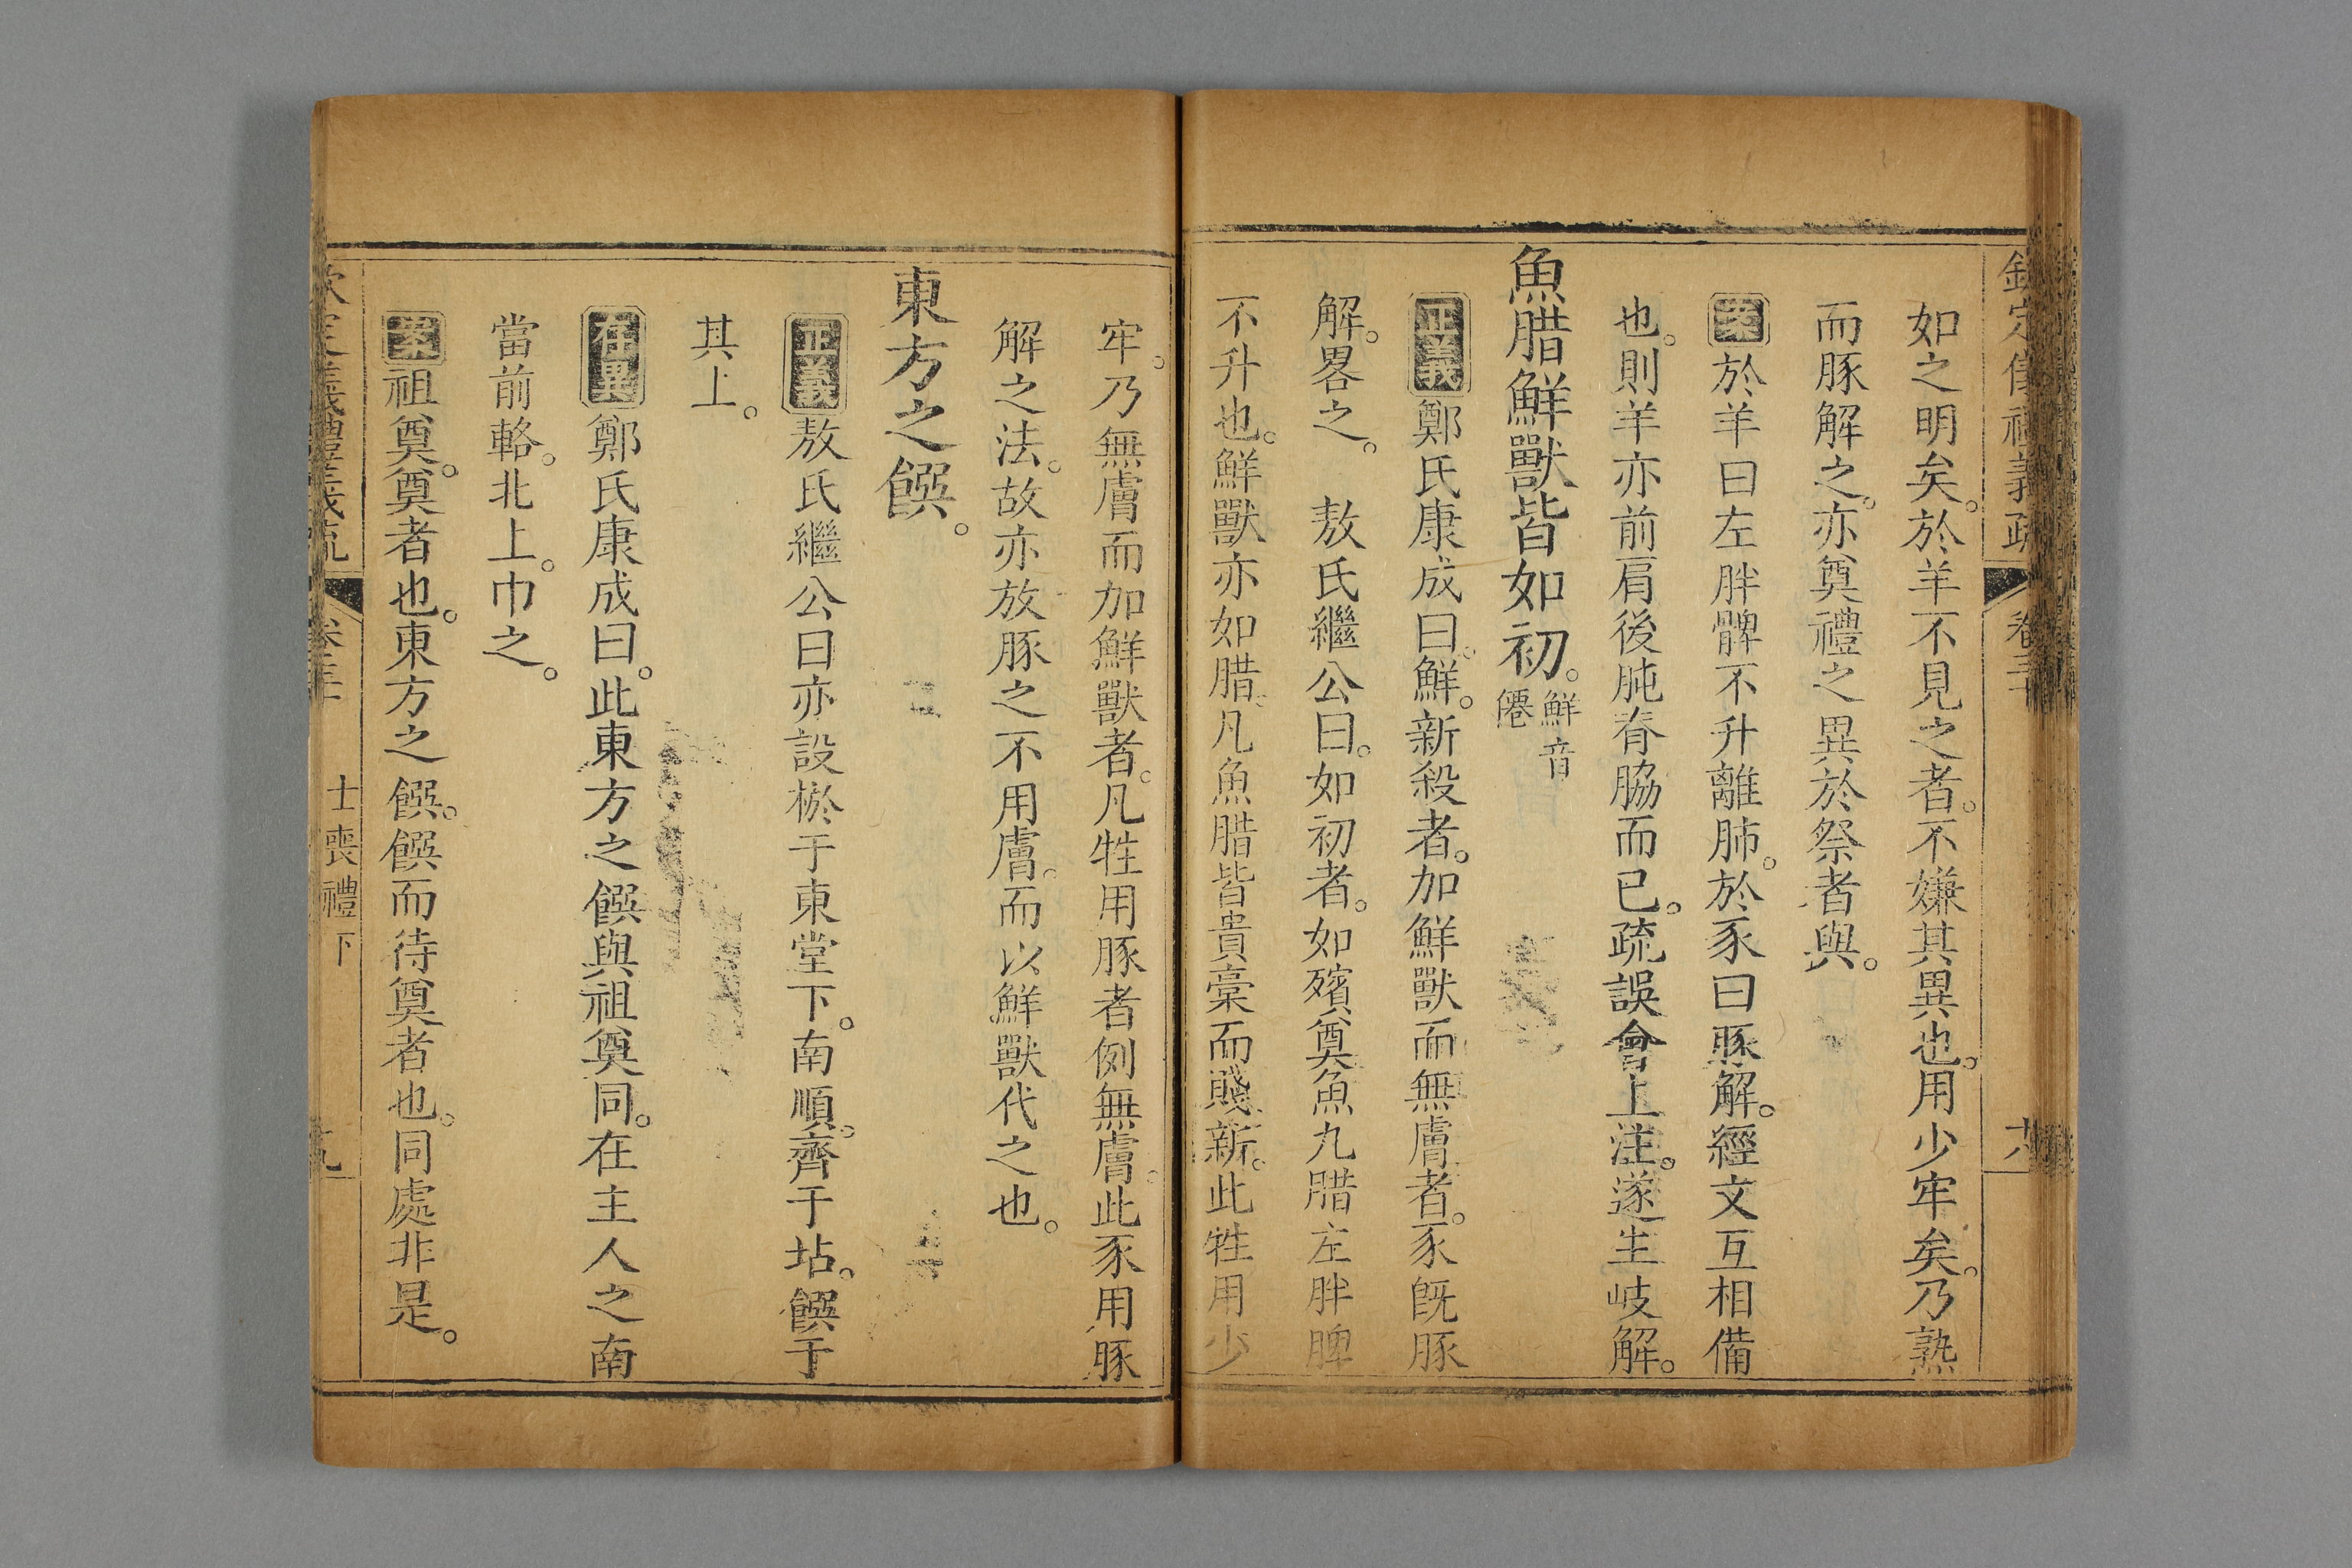 欽定儀禮義疏 卷三十
如之明矣。於羊不見之者。不嫌其異也。用少牢矣。乃熟
而豚解之。亦奠禮之異於祭者與。
案於羊曰左胖髀不升離肺。於豕曰豚解。經文互相備
也。則羊亦前肩後肫脊脇而已。疏誤會上注。遂生岐解。
魚腊鮮獸皆如初。鮮音僊
正義鄭氏康成曰。鮮。新殺者。加鮮獸而無膚者。豕旣豚
解。畧之。 敖氏繼公曰。如初者。如殯奠魚九腊左胖髀
不升也。鮮獸亦如腊。凡魚腊皆貴槀而賤新。此牲用少
牢。乃無膚而加鮮獸者。凡牲用豚者例無膚。此豕用豚
解之法。故亦放豚之不用膚。而以鮮獸代之也。
東方之饌。
正義敖氏繼公曰亦設棜于東堂下。南順。齊于坫。饌于
其上。
存異鄭氏康成曰。此東方之饌與祖奠同。在主人之南
當前輅。北上。巾之。
案祖奠。奠者也。東方之饌。饌而待奠者也。同處非是。
欽定儀禮義疏 卷三十 士喪禮下 十九